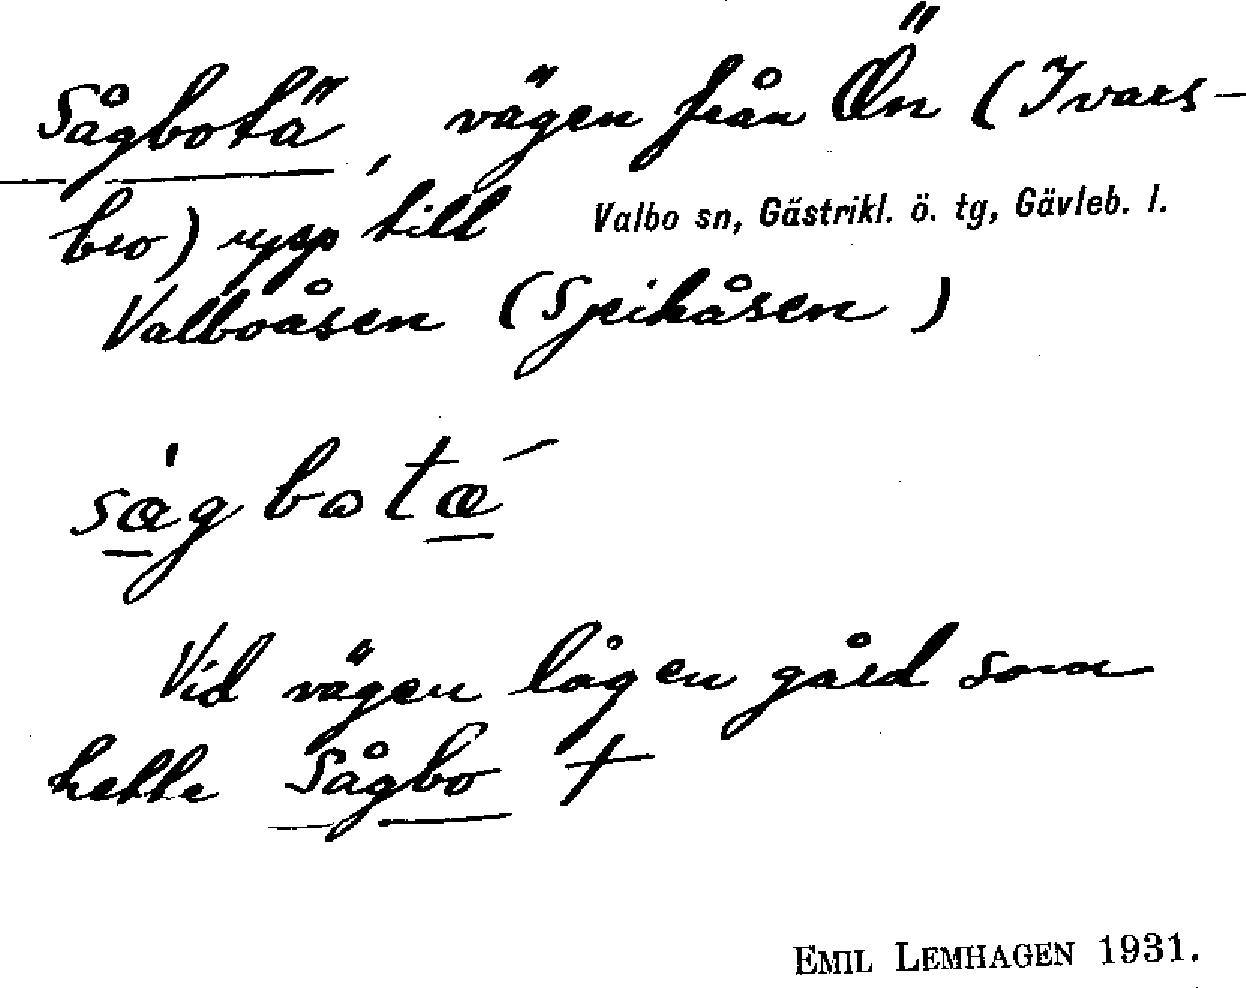 Sågbotä, vägen från Ön (Ivars-
bro) upp till
Valbo sn, Gästrikl. ö. tg, Gävleb. l.
Valboåsen (Spikåsen)
sægbotæ
Vid vägen låg en gård som
hette Sågbo +
EMIL LEMHAGEN 1931.